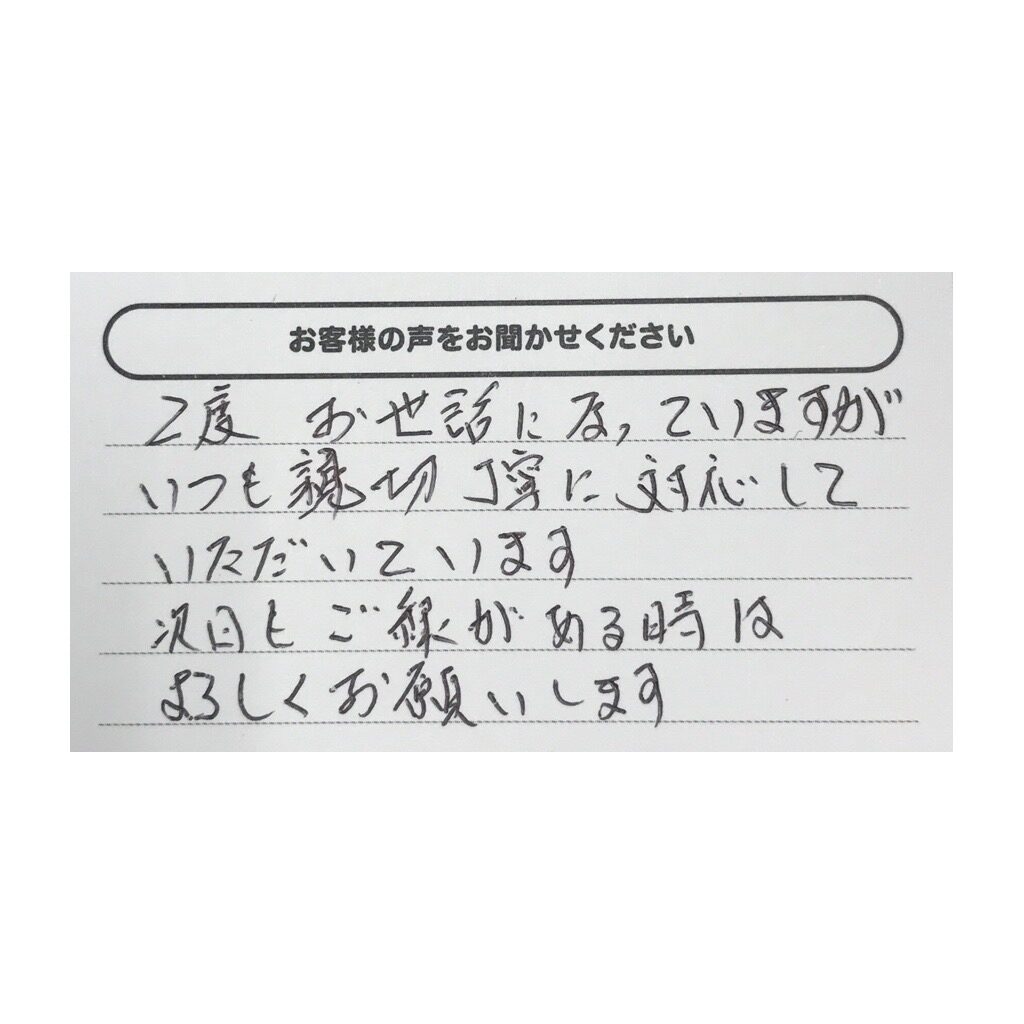 お客様の声をお聞かせください
2度 お世話になっていますが
いつも親切丁寧に対応して
いただいています
次回もご縁がある時は
よろしくお願いします